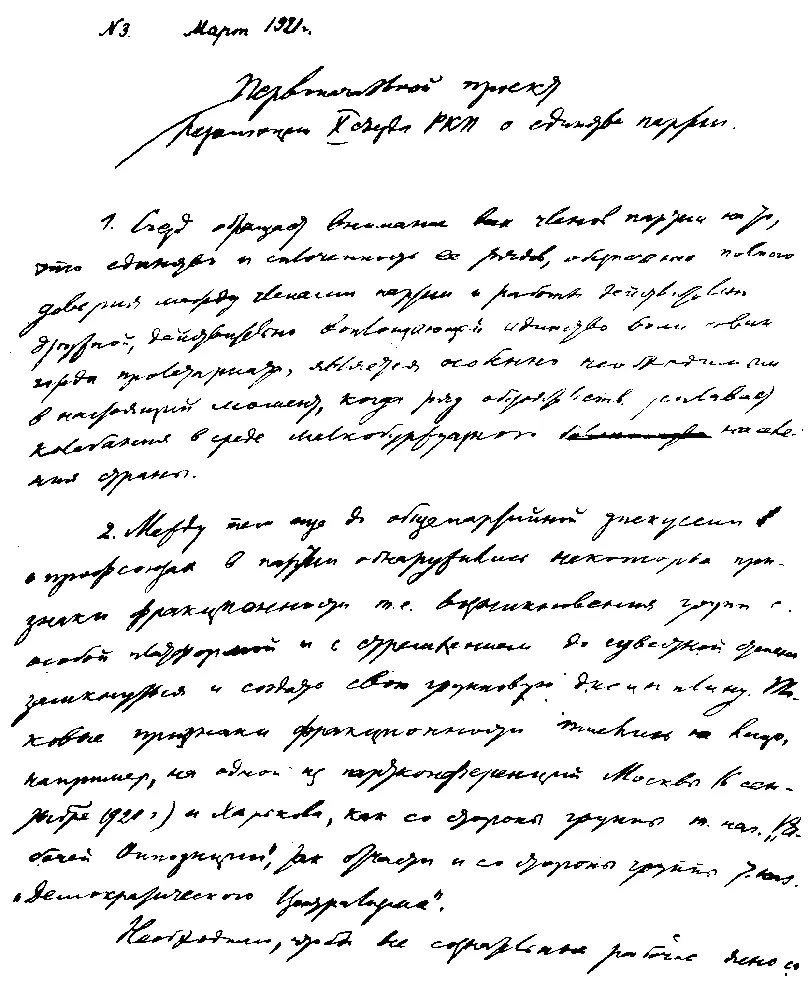 N 3. Март 1921 г.
Первоначальный проект
Резолюции X съезда РКП о единстве партии.
1. Съезд обращает внимание всех членов партии на то,
что единство и сплоченность ее рядов, обеспечение полного
доверия между членами партии и работы действительно
дружной, действительно воплощающей единство воли аван-
гарда пролетариата, является особенно необходимым
в настоящий момент, когда ряд обстоятельств усиливает
колебания в среде мелкобуржуазного населе-
ния страны.
2. Между тем еще до общепартийной дискуссии
о профсоюзах в партии обнаружились некоторые при-
знаки фракционности т.е. возникновения групп с
особой платформой и с стремлением до известной степени
замкнуться и создать свою групповую дисциплину. Та-
ковые признаки фракционности имелись на лицо,
например, на одной из партконференций Москвы (в сен-
тябре 1920 г.) и Харькова, как со стороны группы т. наз. „Ра-
бочей Оппозиции“, так отчасти и со стороны группы т. наз.
„демократического Централизма“.
Необходимо, чтобы все сознательные рабочие ясно со